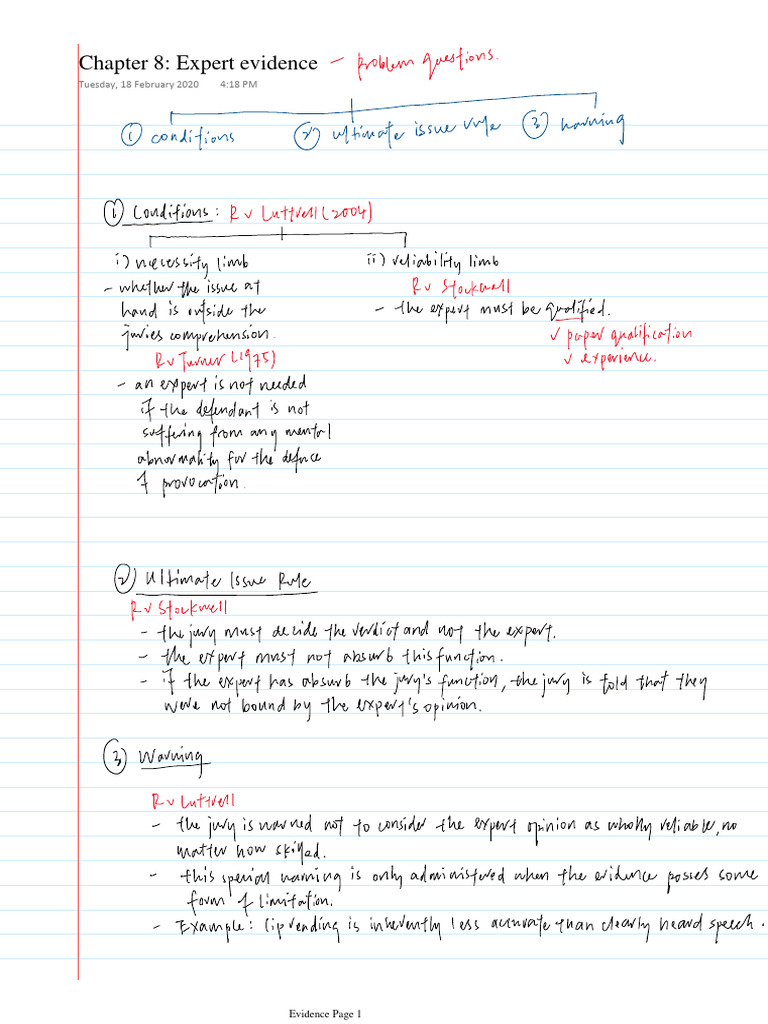 Chapter 8: Expert evidence – problem questions.
Tuesday, 18 February 2020 4:18 PM
① conditions ② ultimate issue rule ③ warning
① Conditions: R v Luttrell (2004)
i) necessity limb
- whether the issue at
hand is outside the
juries comprehension.
R v Turner (1975)
- an expert is not needed
if the defendant is not
suffering from any mental
abnormality for the defence
of provocation.
ii) reliability limb
R v Stockwell
- the expert must be qualified.
✓ paper qualification
✓ experience.
② Ultimate Issue Rule
R v Stockwell
- the jury must decide the verdict and not the expert.
- the expert must not absurb this function.
- if the expert has absurb the jury's function, the jury is told that they
were not bound by the expert's opinion.
③ Warning
R v Luttrell
- the jury is warned not to consider the expert opinion as wholly reliable, no
matter how skilled.
- this special warning is only administered when the evidence posses some
form of limitation.
- Example: lipreading is inherently less accurate than clearly heard speech.
Evidence Page 1